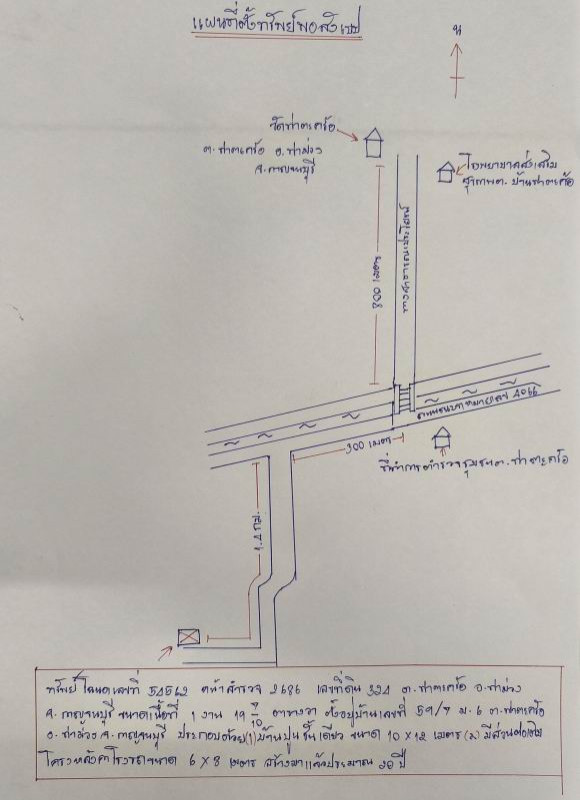 แผนที่ตั้งทรัพย์พอสังเขป
น
วัดท่าตะคร้อ
ต. ท่าตะคร้อ อ.ท่าม่วง
จ. กาญจนบุรี
โรงพยาบาลส่งเสริม
สุขภาพต. บ้านท่าตะคร้อ
800 เมตร
ทางสาธารณประโยชน์
ถนนชนบท หมายเลข 2066
300 เมตร
ที่ทำการตำรวจชุมชนต. ท่าตะคร้อ
1.2 กม.
ทรัพย์ โฉนดเลขที่ 54562 หน้าสำรวจ 2686 เลขที่ดิน 324 ต. ท่าตะคร้อ อ. ท่าม่วง
จ. กาญจนบุรี ขนาดเนื้อที่ 1 งาน 19 7/10 ตารางวา ตั้งอยู่บ้านเลขที่ 59/7 ม. 6 ต. ท่าตะคร้อ
อ. ท่าม่วง จ. กาญจนบุรี ประกอบด้วย (1) บ้านปูนชั้นเดียว ขนาด 10 X 12 เมตร (2) มีส่วนต่อเติม
โครงหลังคาโรงรถขนาด 6 X 8 เมตร สร้างมาแล้วประมาณ 20 ปี